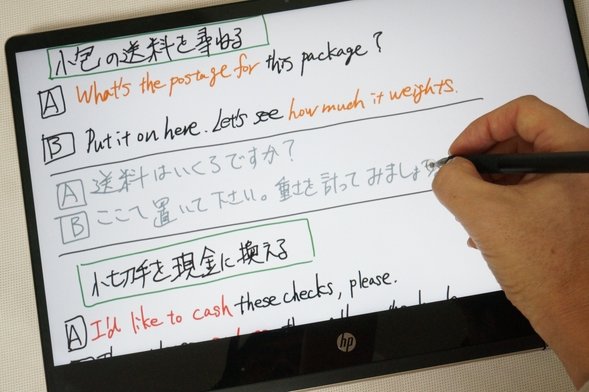 小包の送料を尋ねる
A What's the postage for this package?
B Put it on here. Let's see how much it weights.
A 送料はいくらですか？
B ここに置いて下さい。重さを計ってみましょう
小切手を現金に換える
A I'd like to cash these checks, please.
hp